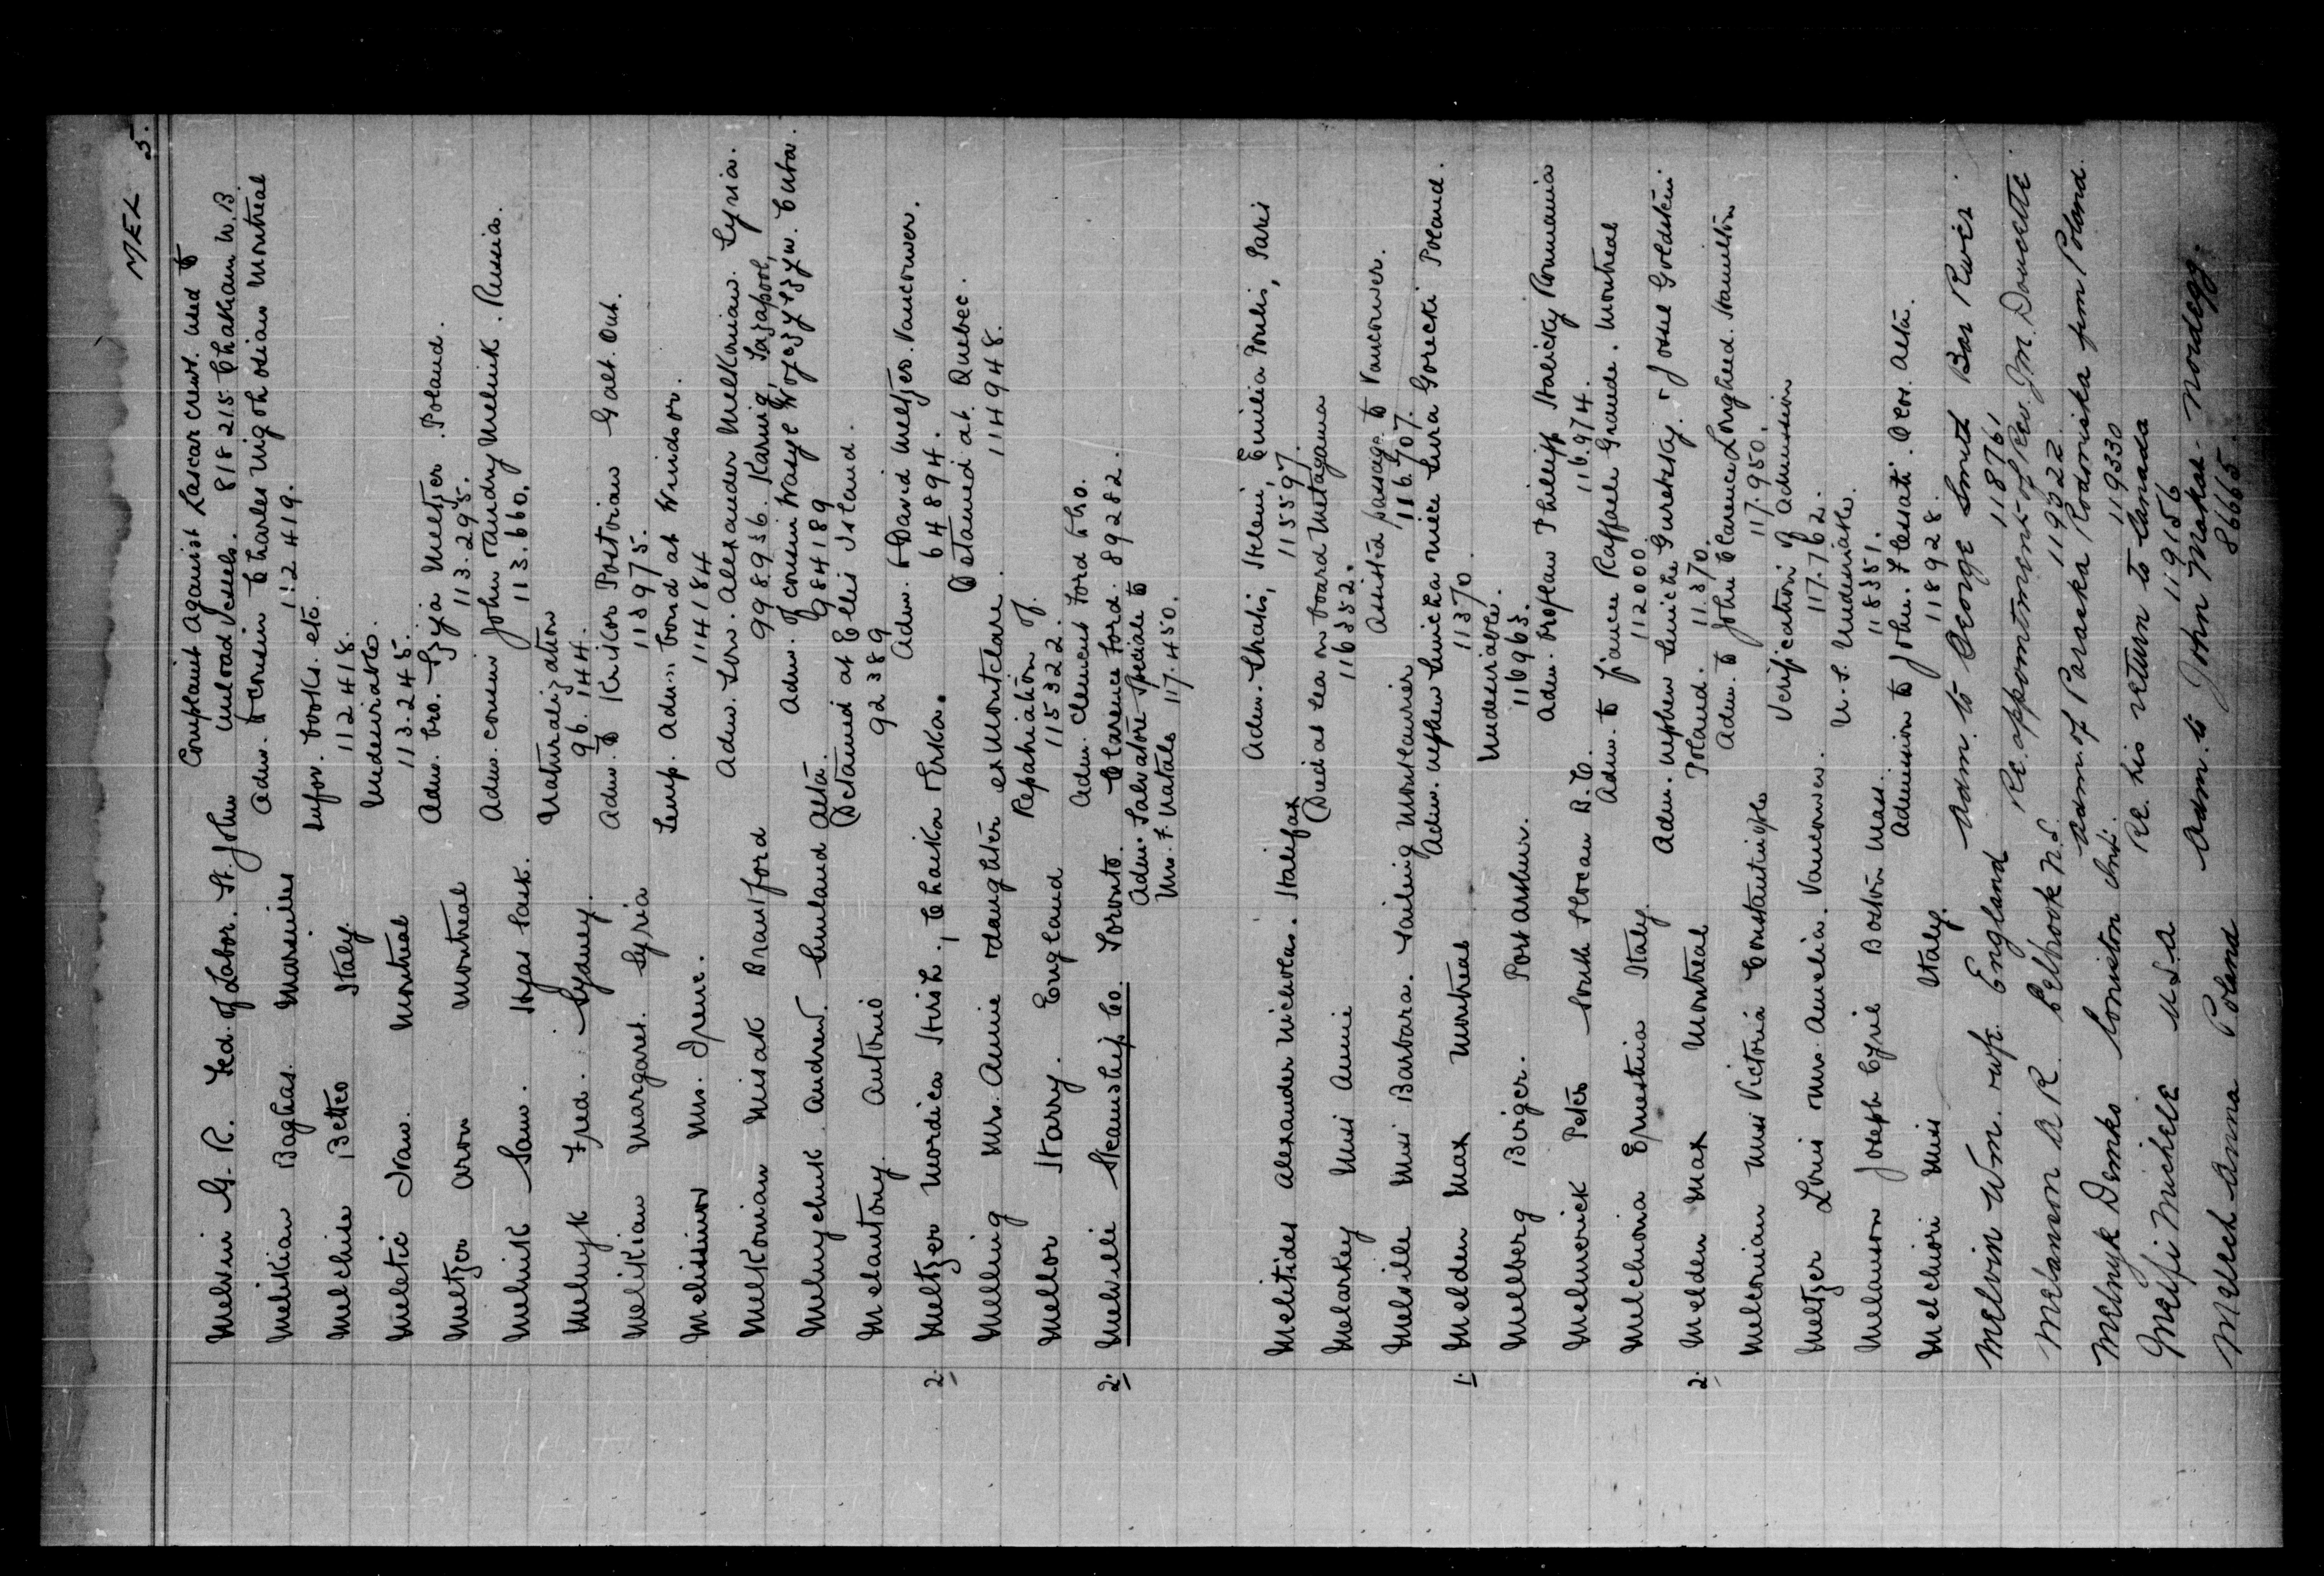 MEL 5.
Complaint Against Lascar crews used to
Melvin G. R. Fed. of Labor. St. John unload vessels. 818215 Chatham N.B
Adm. to cousin Charles Migohosian Montreal
Melikian Baghas. Marseilles 112419.
Infor. books. etc.
Melchise Betteo Italy 112418.
Undesirable.
Meletic Ivan. Montreal 113.245.
Adm. bro. Szyja Meltzer. Poland.
Meltzer Aron Montreal 113.295.
Adm. cousin John & Andry Melnik. Russia.
Melnik Sam. Hyas Sask. 113.660.
Naturalization
Melnyk Fred. Sydney. 96.144.
Adm. to Krikor Postorian Galt. Ont.
Melikian Margaret. Syria 113975.
Temp. Adm: bond at Windsor.
Melissinos Mrs. Irene. 114184
Adm. Son. Alexander Melkonian. Syria.
Melkonian Misak Brantford 998936. Karnig, Sazapool,
Adm. of cousin Wasyl Cuba.
Melnychuk Andrew. Smland Alta. 984189
Detained at Ellis Island.
Melantony. Antonio 92389
Adm. to David Meltzer. Vancouver.
2. Meltzer Mordica Hirsh., Chaika & Erka. 64894.
Detained at. Quebec.
Melling Mrs. Annie & daughter ex Montclare. 114948.
Repatriation of.
Mellor Harry. England 115322.
Adm. Clement Ford & bro.
2. Melville Steamship Co. Toronto. Clarence Ford. 89282.
Adm. Salvatore Speciale to
Mrs. F. Natale 117.450.
Adm. Thakis, Heleni, Emilia Poulis, Paris
Melitides Alexander Nicholas. Halifax 115597.
Died at sea on board Metagama
Melarkey Miss Annie 116352.
Assisted passage to Vancouver.
Melville Miss Barbara. Sailing Montlaurier 116.707.
Adm. nephew niece Sura Gorecki Poland.
1. Melden Max Montreal 11370.
Undesirable.
Melberg Birger. Port Arthur. 116963.
Adm. brother Philipp Halicky Roumania
Melmerick Peter South Slocan B.C. 116.974.
Adm. to fiance Raffaele Grande. Montreal
Melchiona Ernestina Italy. 112000.
Adm. nephew & Josel Goldstein
2. Melden Max Montreal Poland. 11.370.
Adm. to John Clarence Longheed. Hamilton
Melconian Miss Victoria Constantinople 117.950.
Verification of admission
Meltzer Louis & Mrs. Amelia. Vancouver. 117.762.
U.S. Undesirable.
Melanson Joseph Cyril Boston Mass. 118351.
Admission to John. F Cessati. Alta.
Melchiori Miss Italy. 118928.
Adm. to George Smith Bar River.
Melvin Wm. & wife. England 118761
Re. appointment of Rev. J.M. Doucette
Melanson A R. Belbrook N.S. 119322.
Adm. of Paraska Rodomska from Poland.
Melnyk Demko Coniston Ont. 119330
Re. his return to Canada
Melfi Michele U.S.A 119156
Adm. to John Makoa - Nordegg.
Mellech Anna Poland 86665.